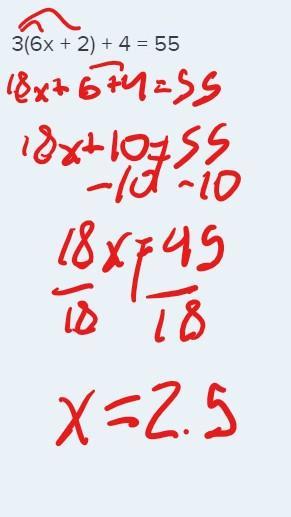 3(6x + 2) + 4 = 55
18x+6+4=55
18x+10=55
-10 -10
18x=45
18 18
x=2.5